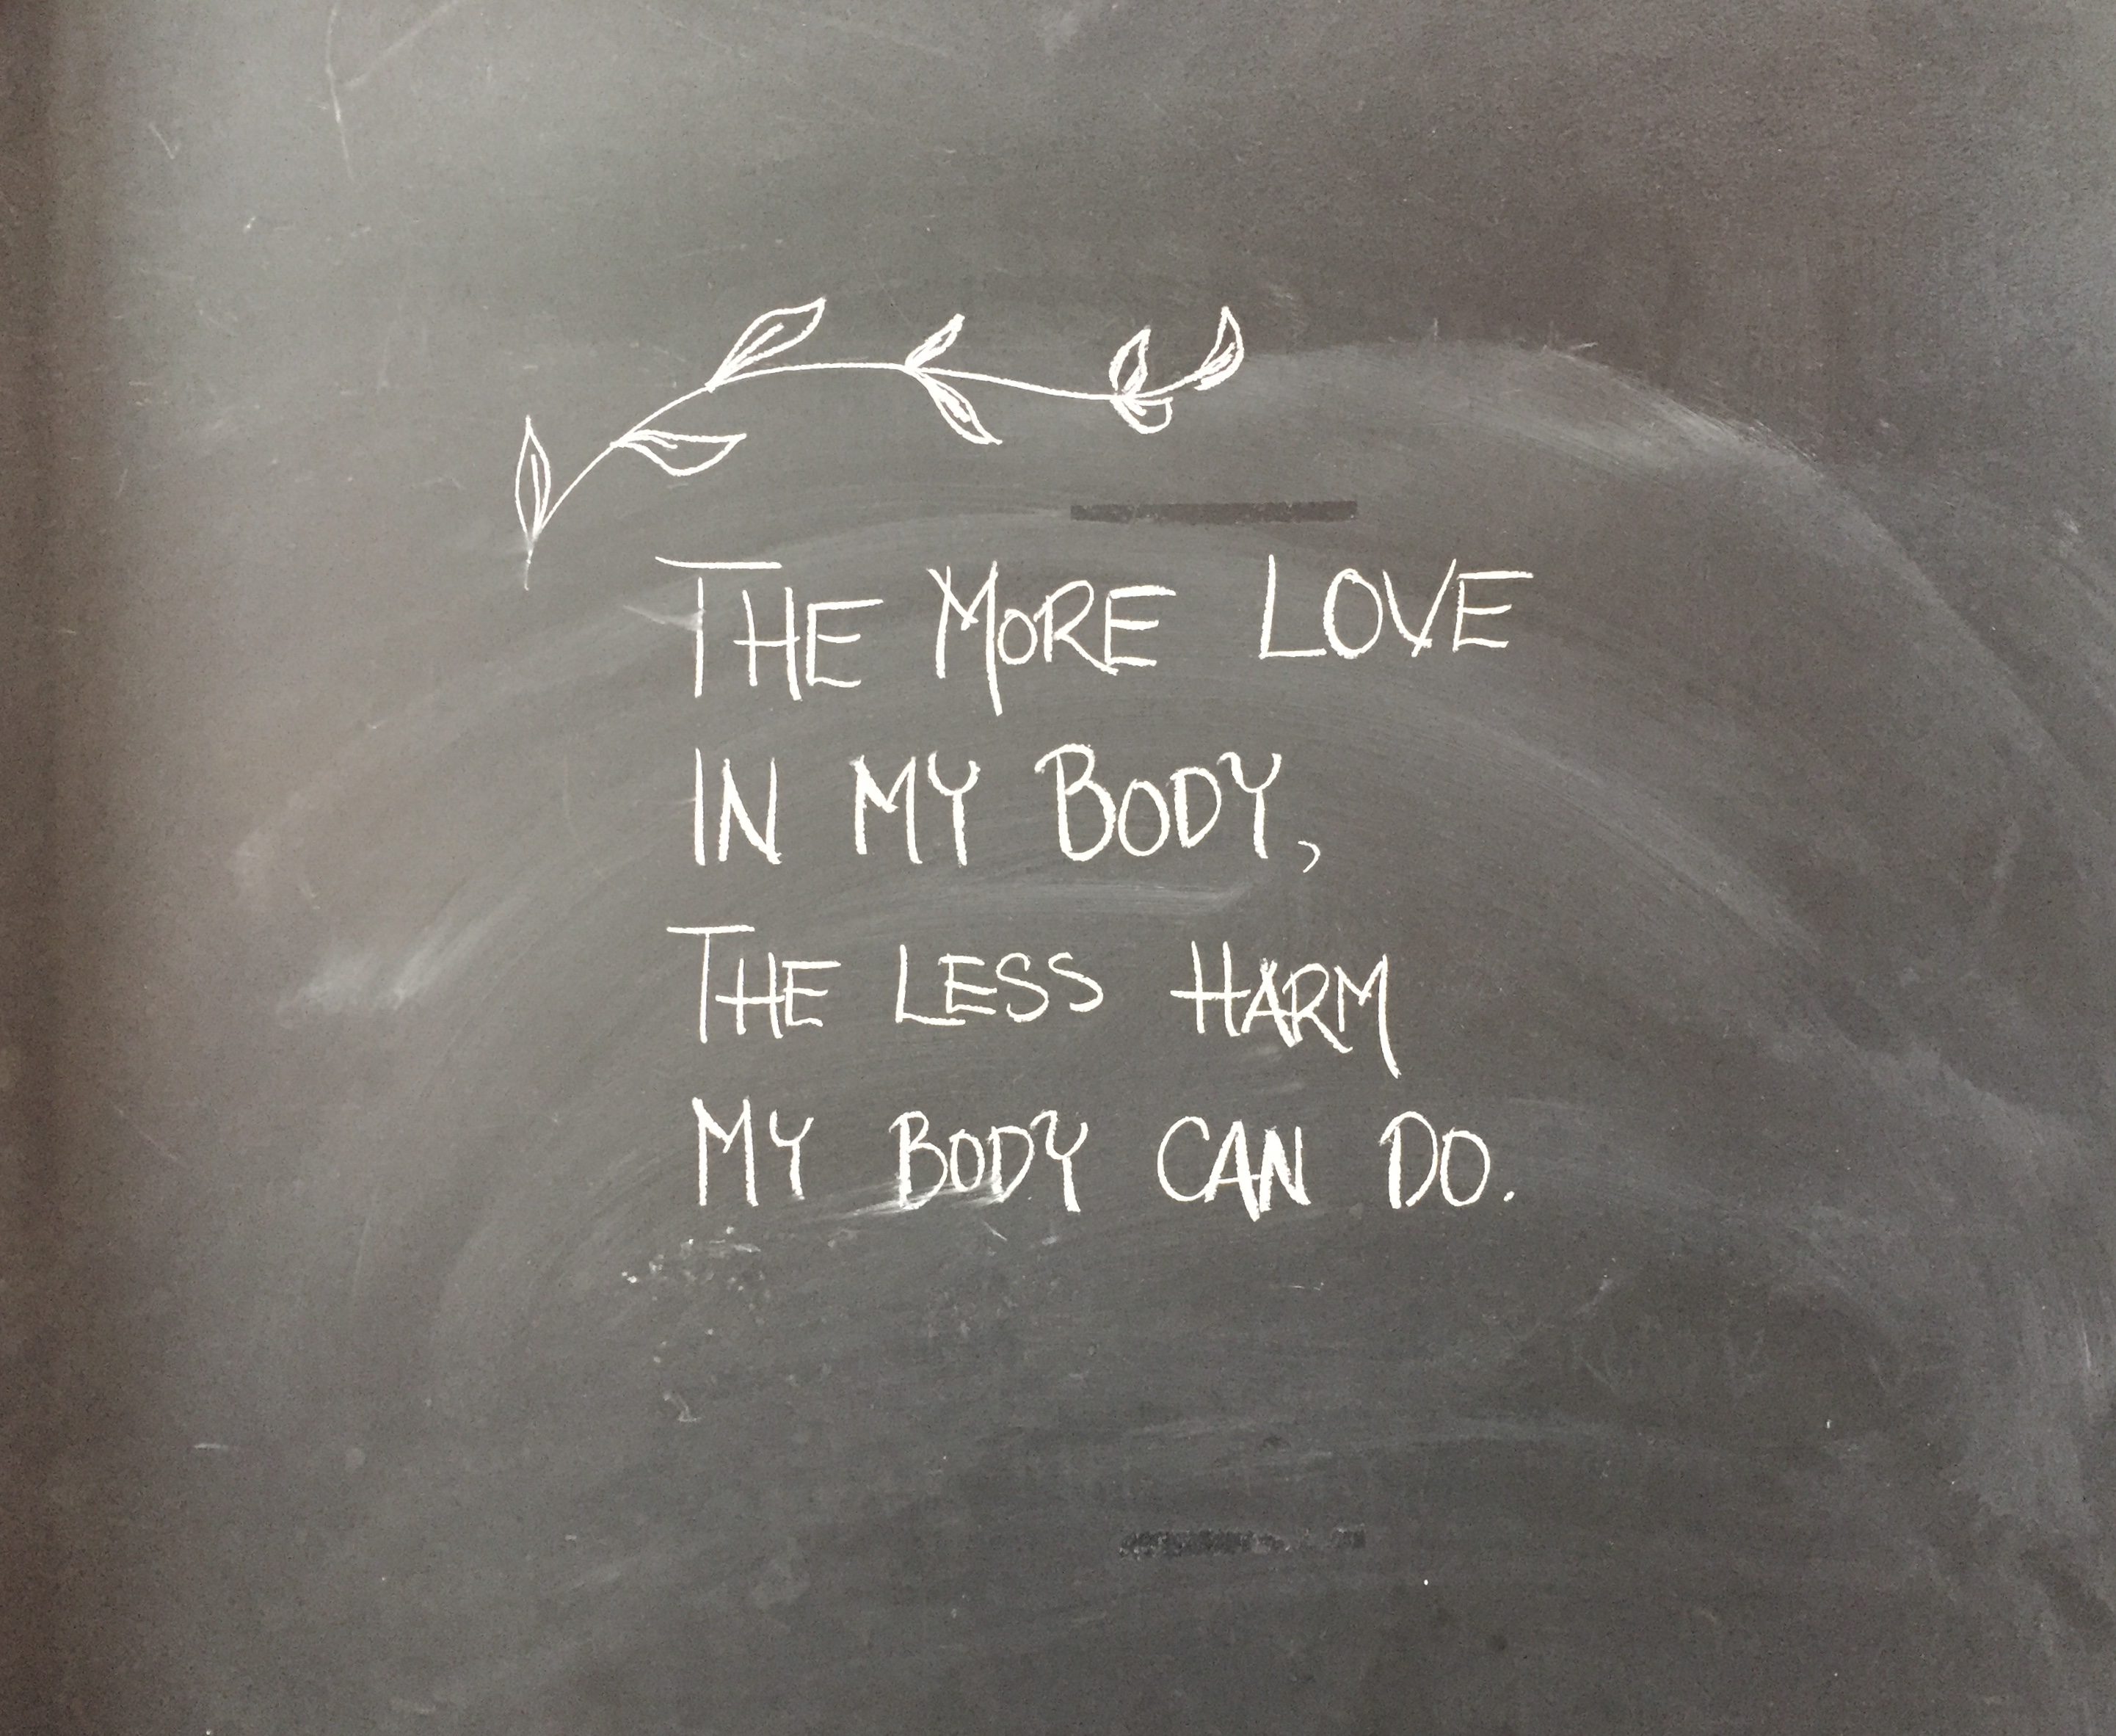 THE MORE LOVE
IN MY BODY,
THE LESS HARM
MY BODY CAN DO.